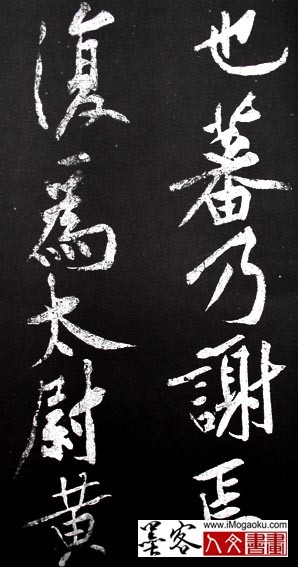 也蕃乃謝焉
復為太尉黃
墨客
www.iMogaoku.com
人文書畫